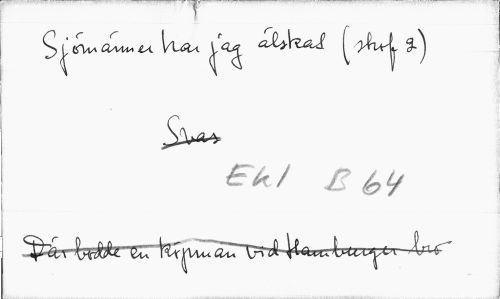 Sjömänner har jag älskad (strof 2)
Svar
Ekl B 64
Där bodde en köpman vid Hamburger bro